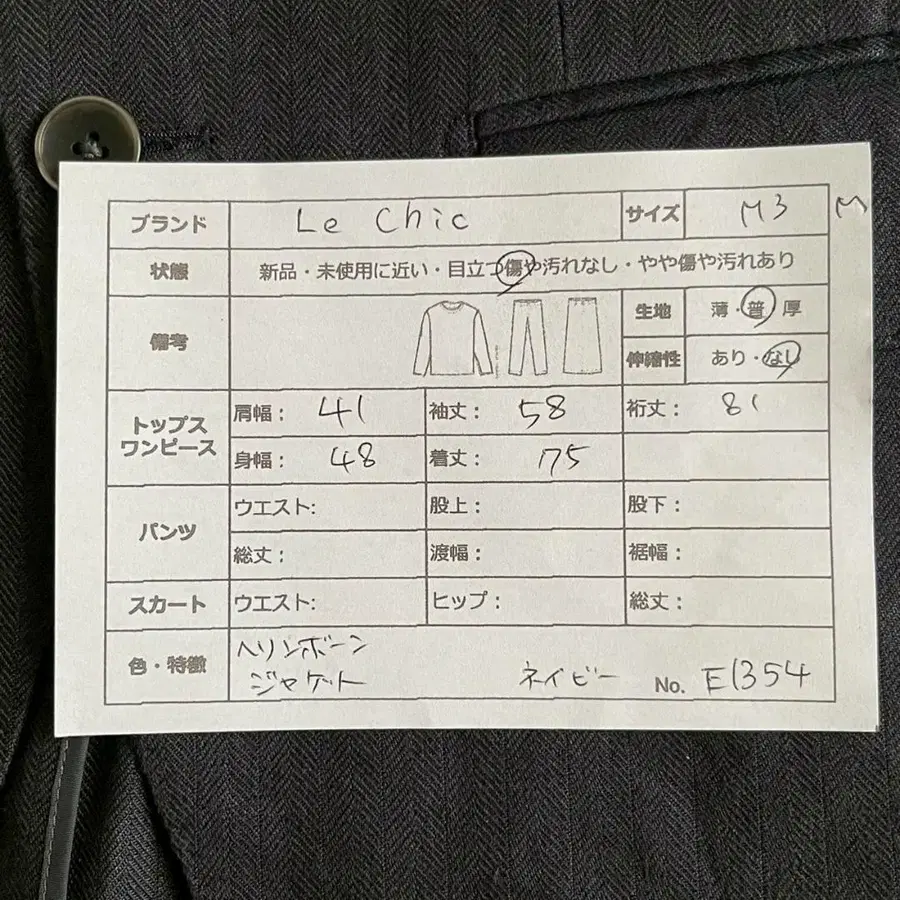 ブランド Le Chic サイズ M3 M
状態 新品・未使用に近い・目立つ傷や汚れなし・やや傷や汚れあり
備考 生地 薄・普・厚
伸縮性 あり・なし
トップス
ワンピース
肩幅: 41 袖丈: 58 裄丈: 81
身幅: 48 着丈: 75
パンツ
ウエスト: 股上: 股下:
総丈: 渡幅: 裾幅:
スカート ウエスト: ヒップ: 総丈:
色・特徴 ヘリンボーン
ジャケット ネイビー No. E1354